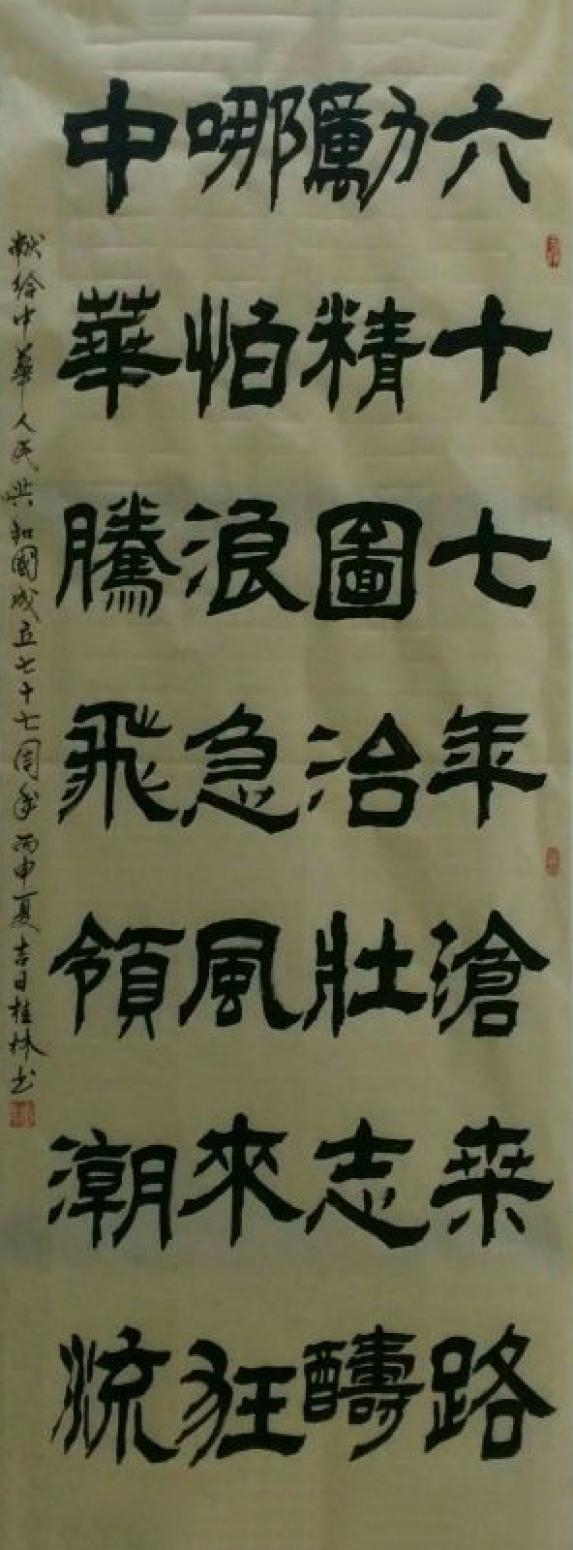 六十七年滄桒路
勵精圖治壯志醻
哪怕浪急風來狂
中華騰飛領潮流
献给中華人民共和國成立七十七周年 丙申夏吉日桂林书